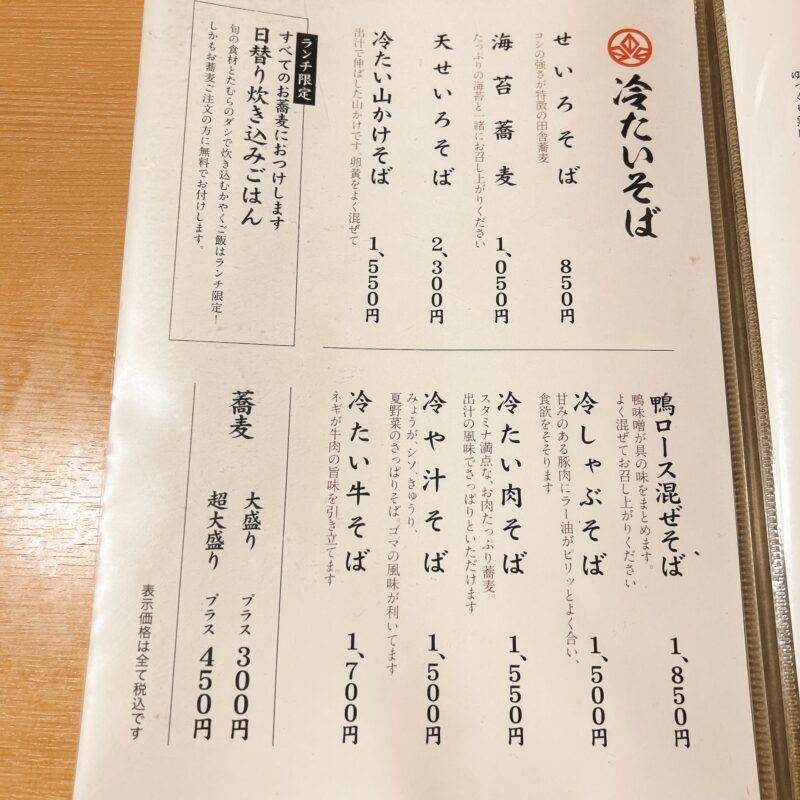 冷たいそば
せいろそば
コシの強さが特徴の田舎蕎麦
850円
海苔蕎麦
たっぷりの海苔と一緒にお召し上がりください
1,050円
天せいろそば
2,300円
冷たい山かけそば
出汁で伸ばした山かけです。卵黄をよく混ぜて
1,550円
ランチ限定
すべてのお蕎麦におつけします
日替り炊き込みごはん
旬の食材とたむらのダシで炊き込むかやくご飯はランチ限定!
しかもお蕎麦ご注文の方に無料でお付けします。
鴨ロース混ぜそば
鴨味噌が具の味をまとめます。
よく混ぜてお召し上がりください
1,850円
冷しゃぶそば
甘みのある豚肉にラー油がピリッとよく合い、
食欲をそそります
1,500円
冷たい肉そば
スタミナ満点な、お肉たっぷり蕎麦。
出汁の風味でさっぱりといただけます
1,550円
冷や汁そば
みょうが、シソ、きゅうり、
夏野菜のさっぱりそば。ゴマの風味が利いてます
1,500円
冷たい牛そば
ネギが牛肉の旨味を引き立てます
1,700円
蕎麦
大盛り プラス 300円
超大盛り プラス 450円
表示価格は全て税込です